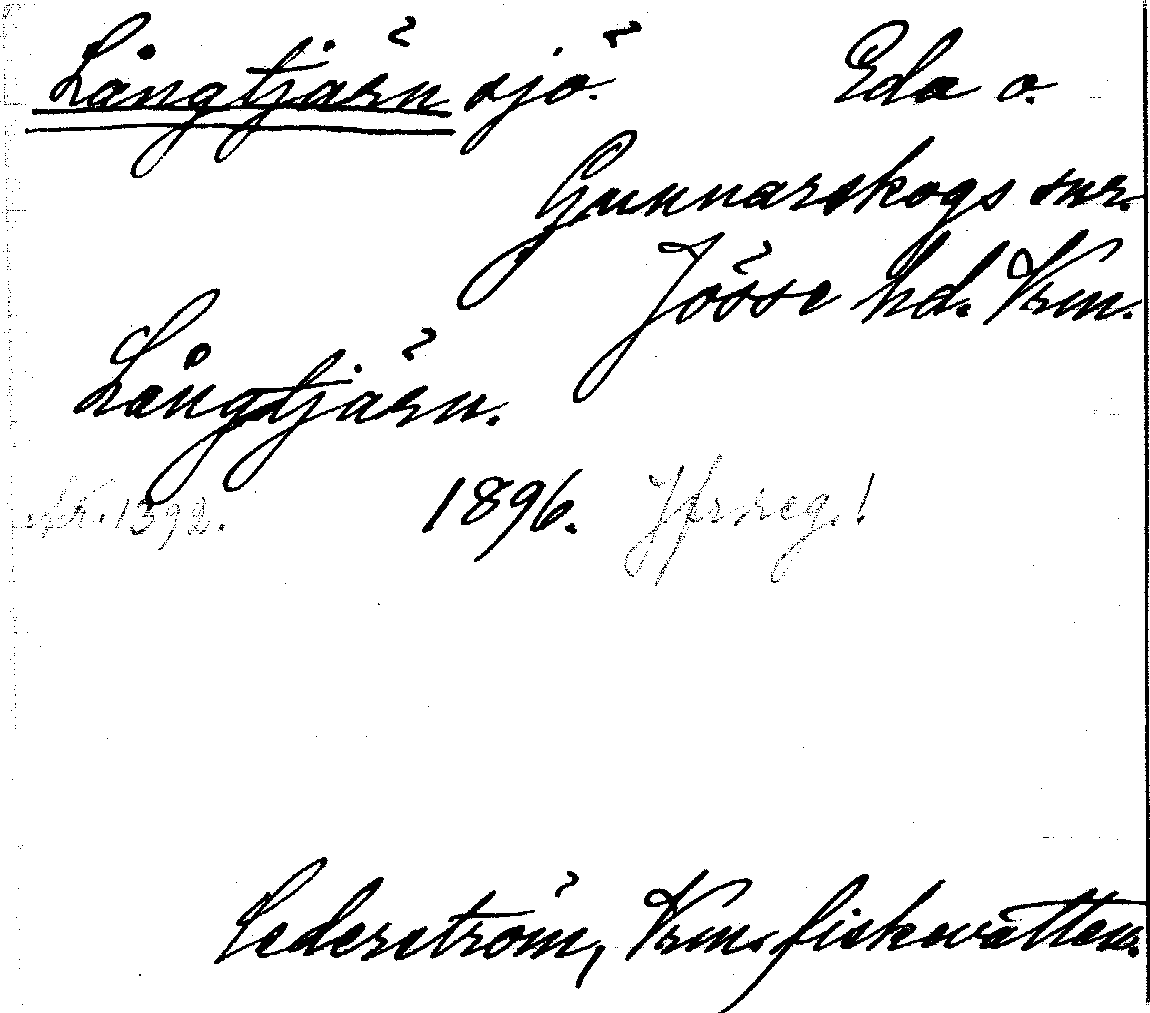 Långtjärn sjö. Eda o.
Gunnarskogs snr.
Jösse hd. Vrm.
Långtjärn.
1392. 1896. Jfr reg.!
Cederström, Vrm. fiskevatten.